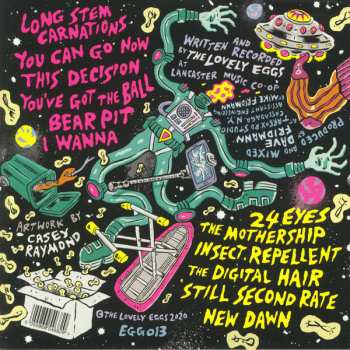 LONG STEM
CARNATIONS
YOU CAN GO NOW
THIS DECISION
YOU'VE GOT THE BALL
BEAR PIT
I WANNA
WRITTEN AND RECORDED
BY THE LOVELY EGGS
AT LANCASTER MUSIC CO-OP
PRODUCED BY
AND MIXED
DAVE FRIDMANN
ARTWORK BY
CASEY
RAYMOND
24 EYES
THE MOTHERSHIP
INSECT REPELLENT
THE DIGITAL HAIR
STILL SECOND RATE
NEW DAWN
℗©THE LOVELY EGGS 2020
EGG013